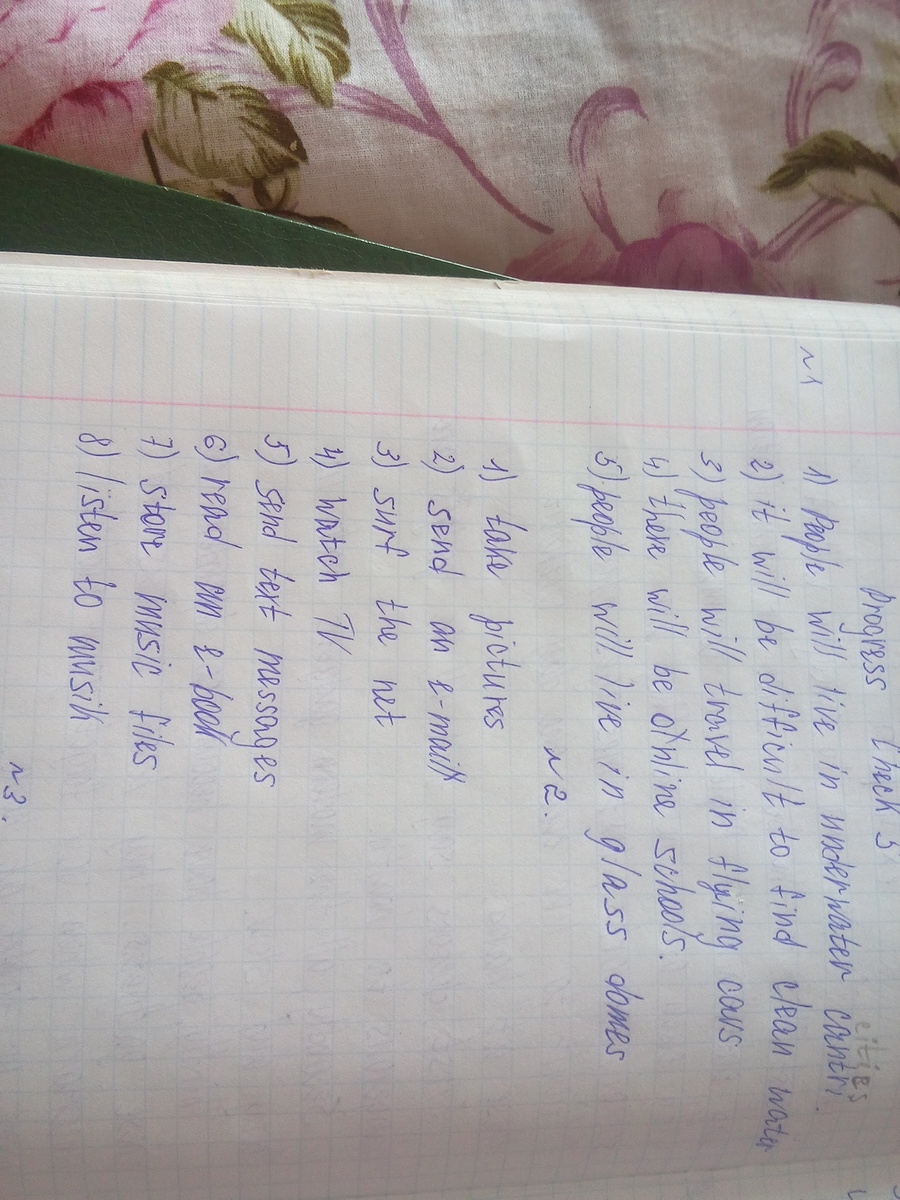 Progress Check 3
№1
cities
1) People will live in underwater cantri.
2) it will be difficult to find clean water
3) people will travel in flying cars.
4) there will be online schools.
5) people will live in glass domes
№2.
1) take pictures
2) send an e-mail
3) surf the net
4) watch TV
5) send text messages
6) read an e-book
7) store music files
8) listen to musik
№3.